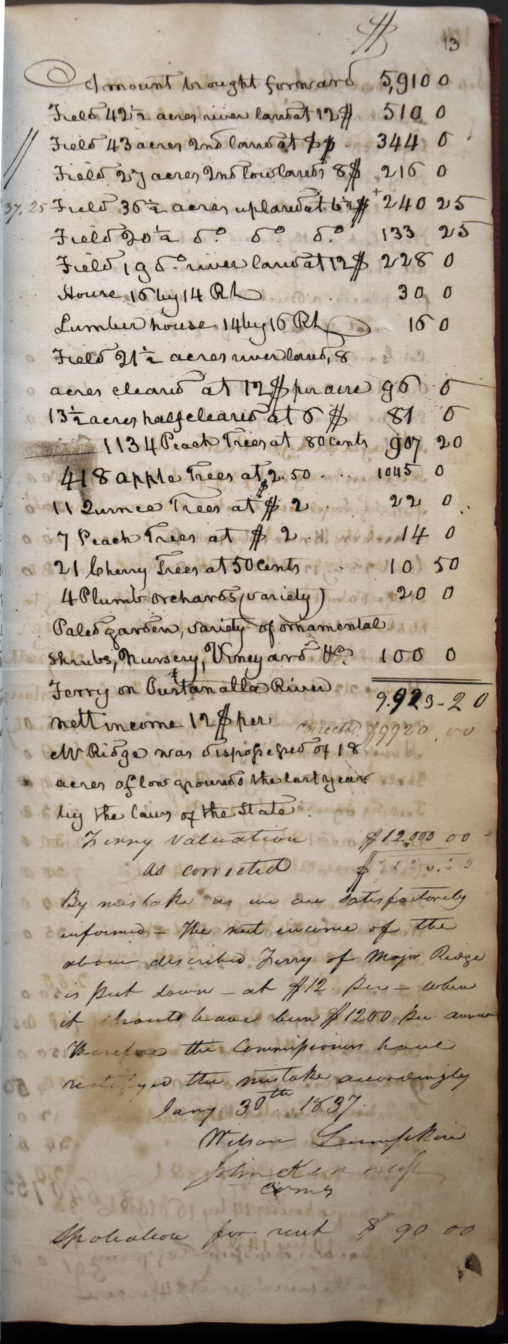 $ 13
Amount brought forward 5,910 0
Field 42½ acres river land at 12$ 510 0
// Field 43 acres 2nd land at 8$ 344 0
Field 27 acres 2nd low land 8$ 216 0
37.25 Field 36½ acres upland at 6½$ +240 25
Field 20½ do do do 133 25
Field 19 do river land at 12$ 228 0
House 16 by 14 Rh 30 0
Lumber house 14 by 16 Rh 16 0
Field 21½ acres river land, 8
acres cleared at 12$ per acre 96 0
13½ acres half cleared at 6$ 81 0
1134 Peach Trees at 80 cents 907 20
418 apple Trees at $2.50 1045 0
11 Quince Trees at $2 22 0
7 Peach Trees at $2 14 0
21 Cherry Trees at 50 cents 10 50
4 Plumb orchards (variety) 20 0
Paled garden, variety of ornamental
Shrubs, Nursery, Vineyard &c 100 0
Ferry on Oustanalla River 9.923-20
nett income 12$ per
$9920.00
Mr Ridge was dispossessed of 18
acres of low grounds the last year
by the laws of the State.
Ferry Valuation $12,000 00
as corrected $
By mistake as we are satisfactorily
informed - The net income of the
above described Ferry of Major Ridge
is put down - at $12 per - when
it should have been $1200 per annum
Therefore the Commissioners have
rectifyed the mistake accordingly
Jany. 30th 1837.
Wilson Lumpkin
John Kennedy
Coms
Spoliation for rent $ 90 00